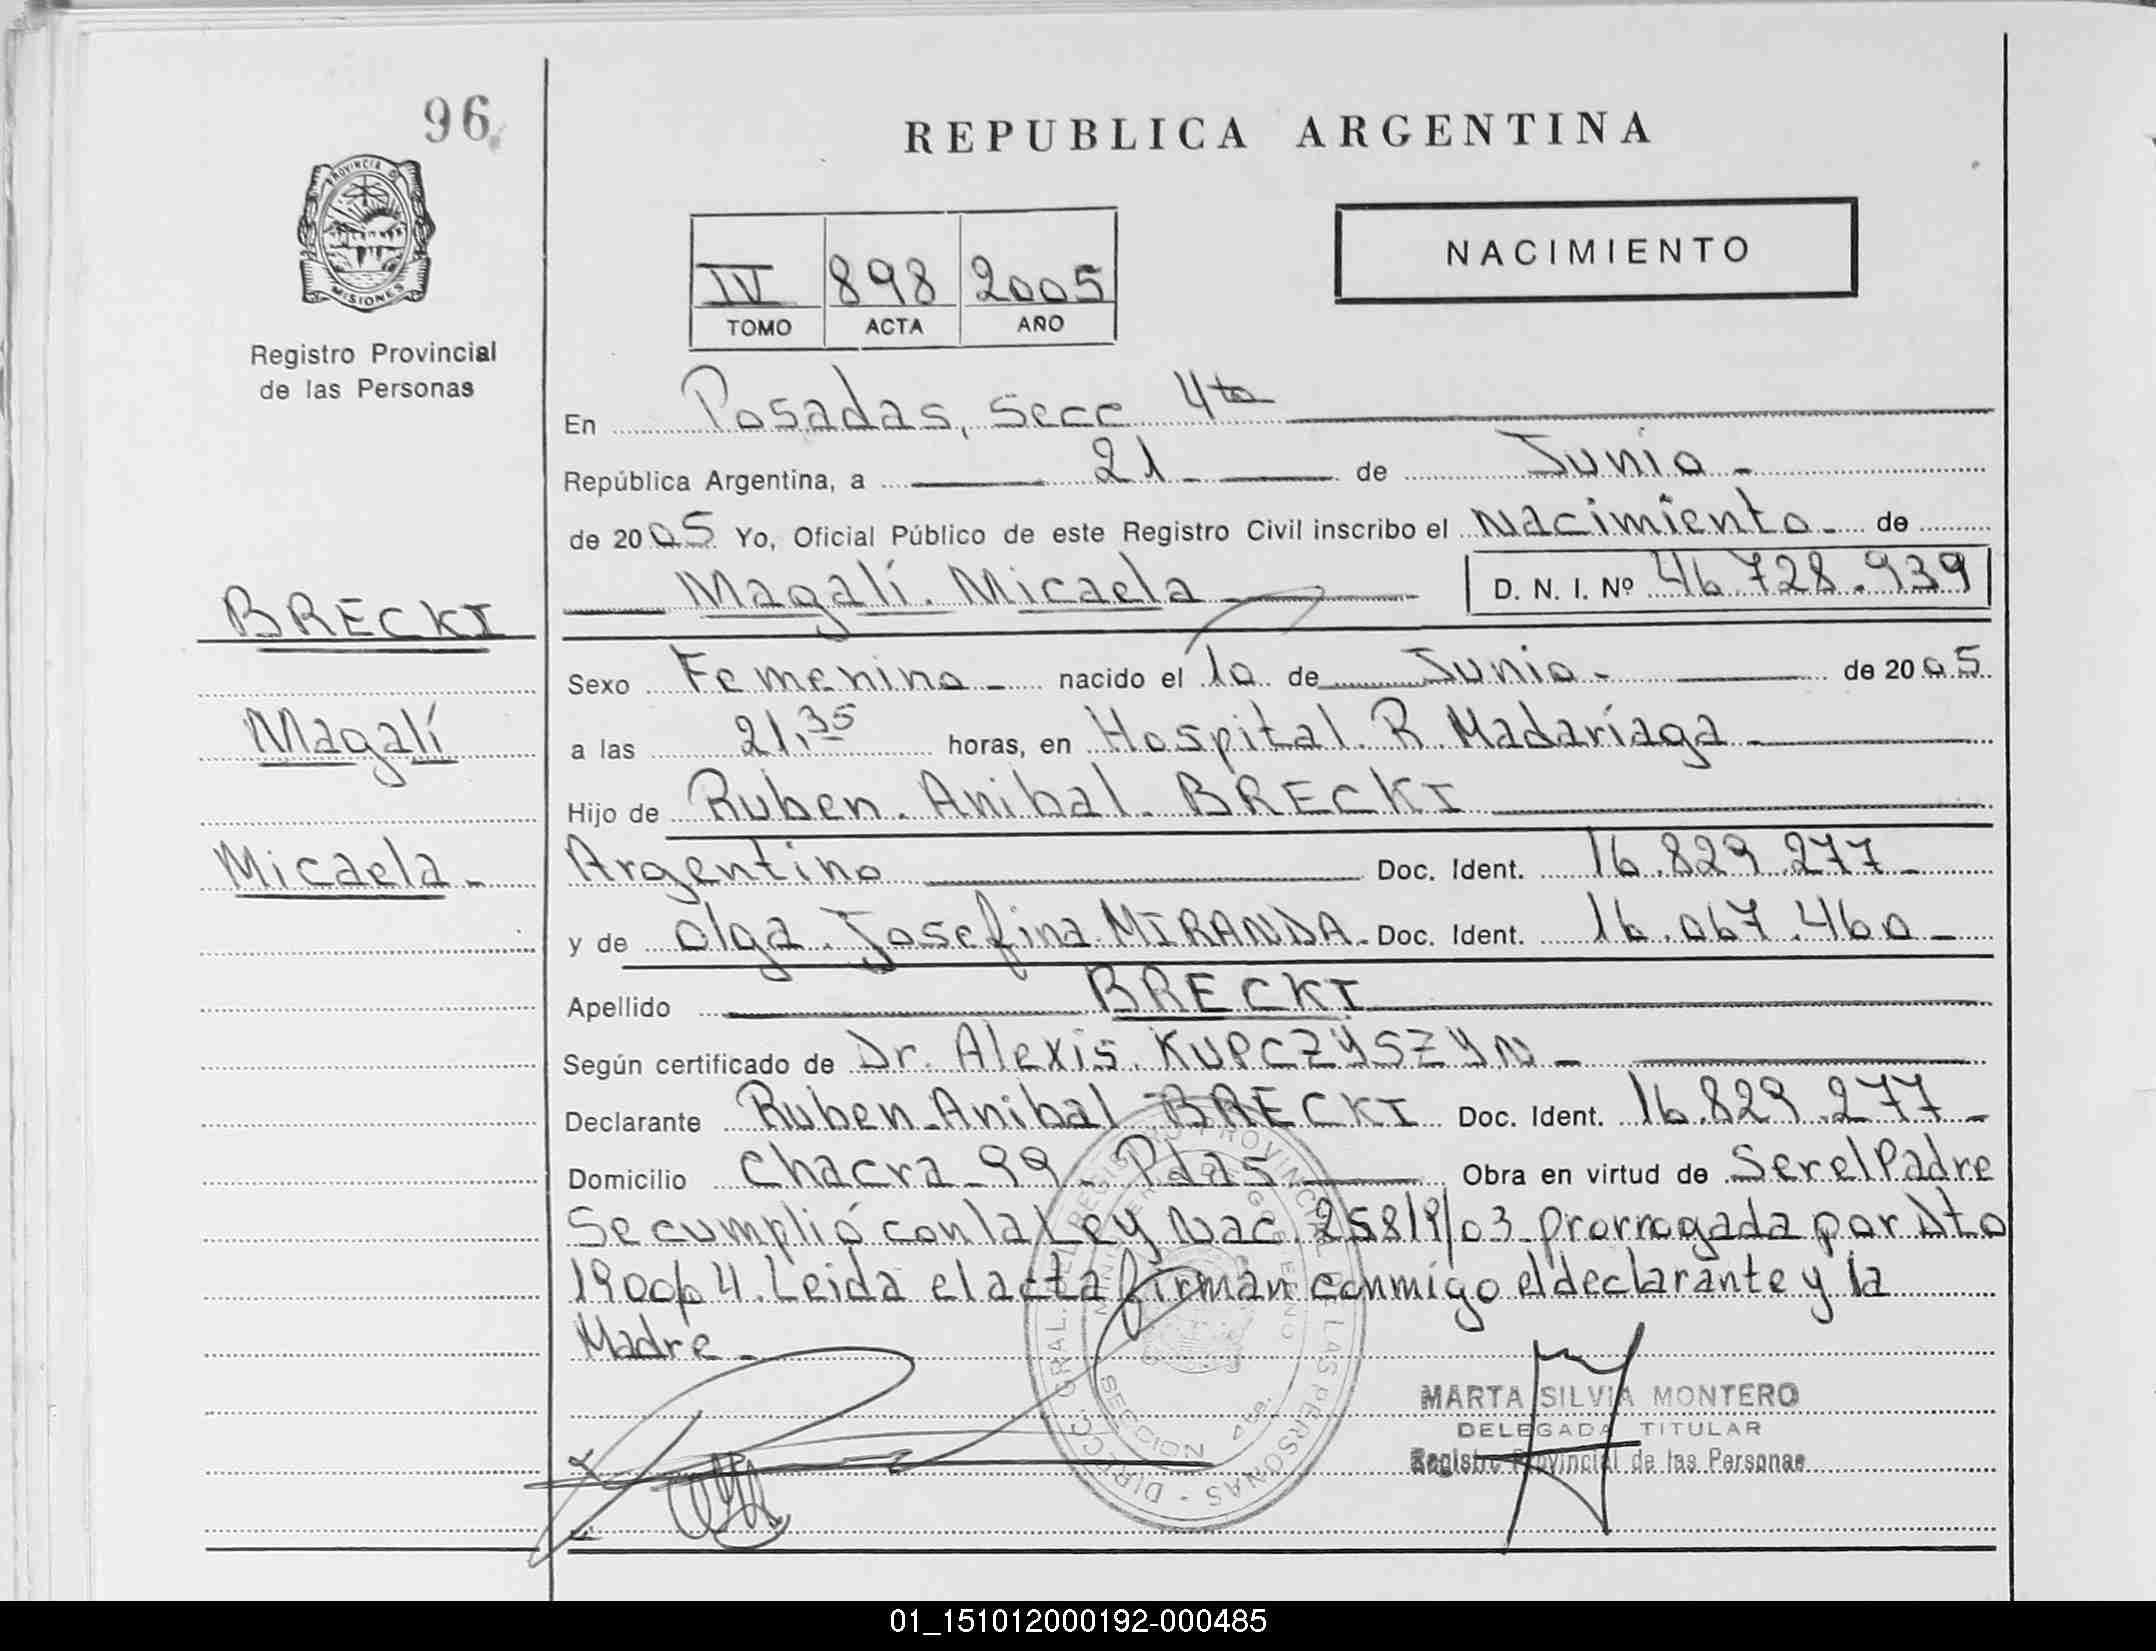 96
PROVINCIA DE
MISIONES
Registro Provincial
de las Personas
BRECKI
Magalí
Micaela
REPUBLICA ARGENTINA
NACIMIENTO
IV 898 2005
TOMO ACTA AÑO
En Posadas, secc 4ta
República Argentina, a 21 de Junio
de 2005 Yo, Oficial Público de este Registro Civil inscribo el Nacimiento de
Magalí Micaela D. N. I. Nº 46.728.939
Sexo Femenino nacido el 10 de Junio de 2005
a las 21,35 horas, en Hospital R. Madariaga
Hijo de Ruben Anibal BRECKI
Argentino Doc. Ident. 16.829.277
y de Olga Josefina MIRANDA Doc. Ident. 16.067.460
Apellido BRECKI
Según certificado de Dr. Alexis KUPCZYSZYN
Declarante Ruben Anibal BRECKI Doc. Ident. 16.829.277
Domicilio Chacra 99 Pdas Obra en virtud de Ser el Padre
Se cumplió con la Ley Nac. 25819/03 prorrogada por Dto
1900/04. Leida el acta firman conmigo el declarante y la
Madre
DIRECC. GRAL. DEL REGISTRO PROVINCIAL DE LAS PERSONAS
SECCION 4ta.
MARTA SILVIA MONTERO
DELEGADA TITULAR
Registro Provincial de las Personas
01_151012000192-000485